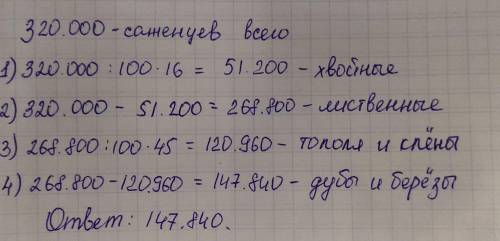 320.000 - саженцев всего
1) 320.000 : 100 · 16 = 51.200 - хвойные
2) 320.000 - 51.200 = 268.800 - лиственные
3) 268.800 : 100 · 45 = 120.960 - тополя и клёны
4) 268.800 - 120.960 = 147.840 - дубы и берёзы
Ответ: 147.840.